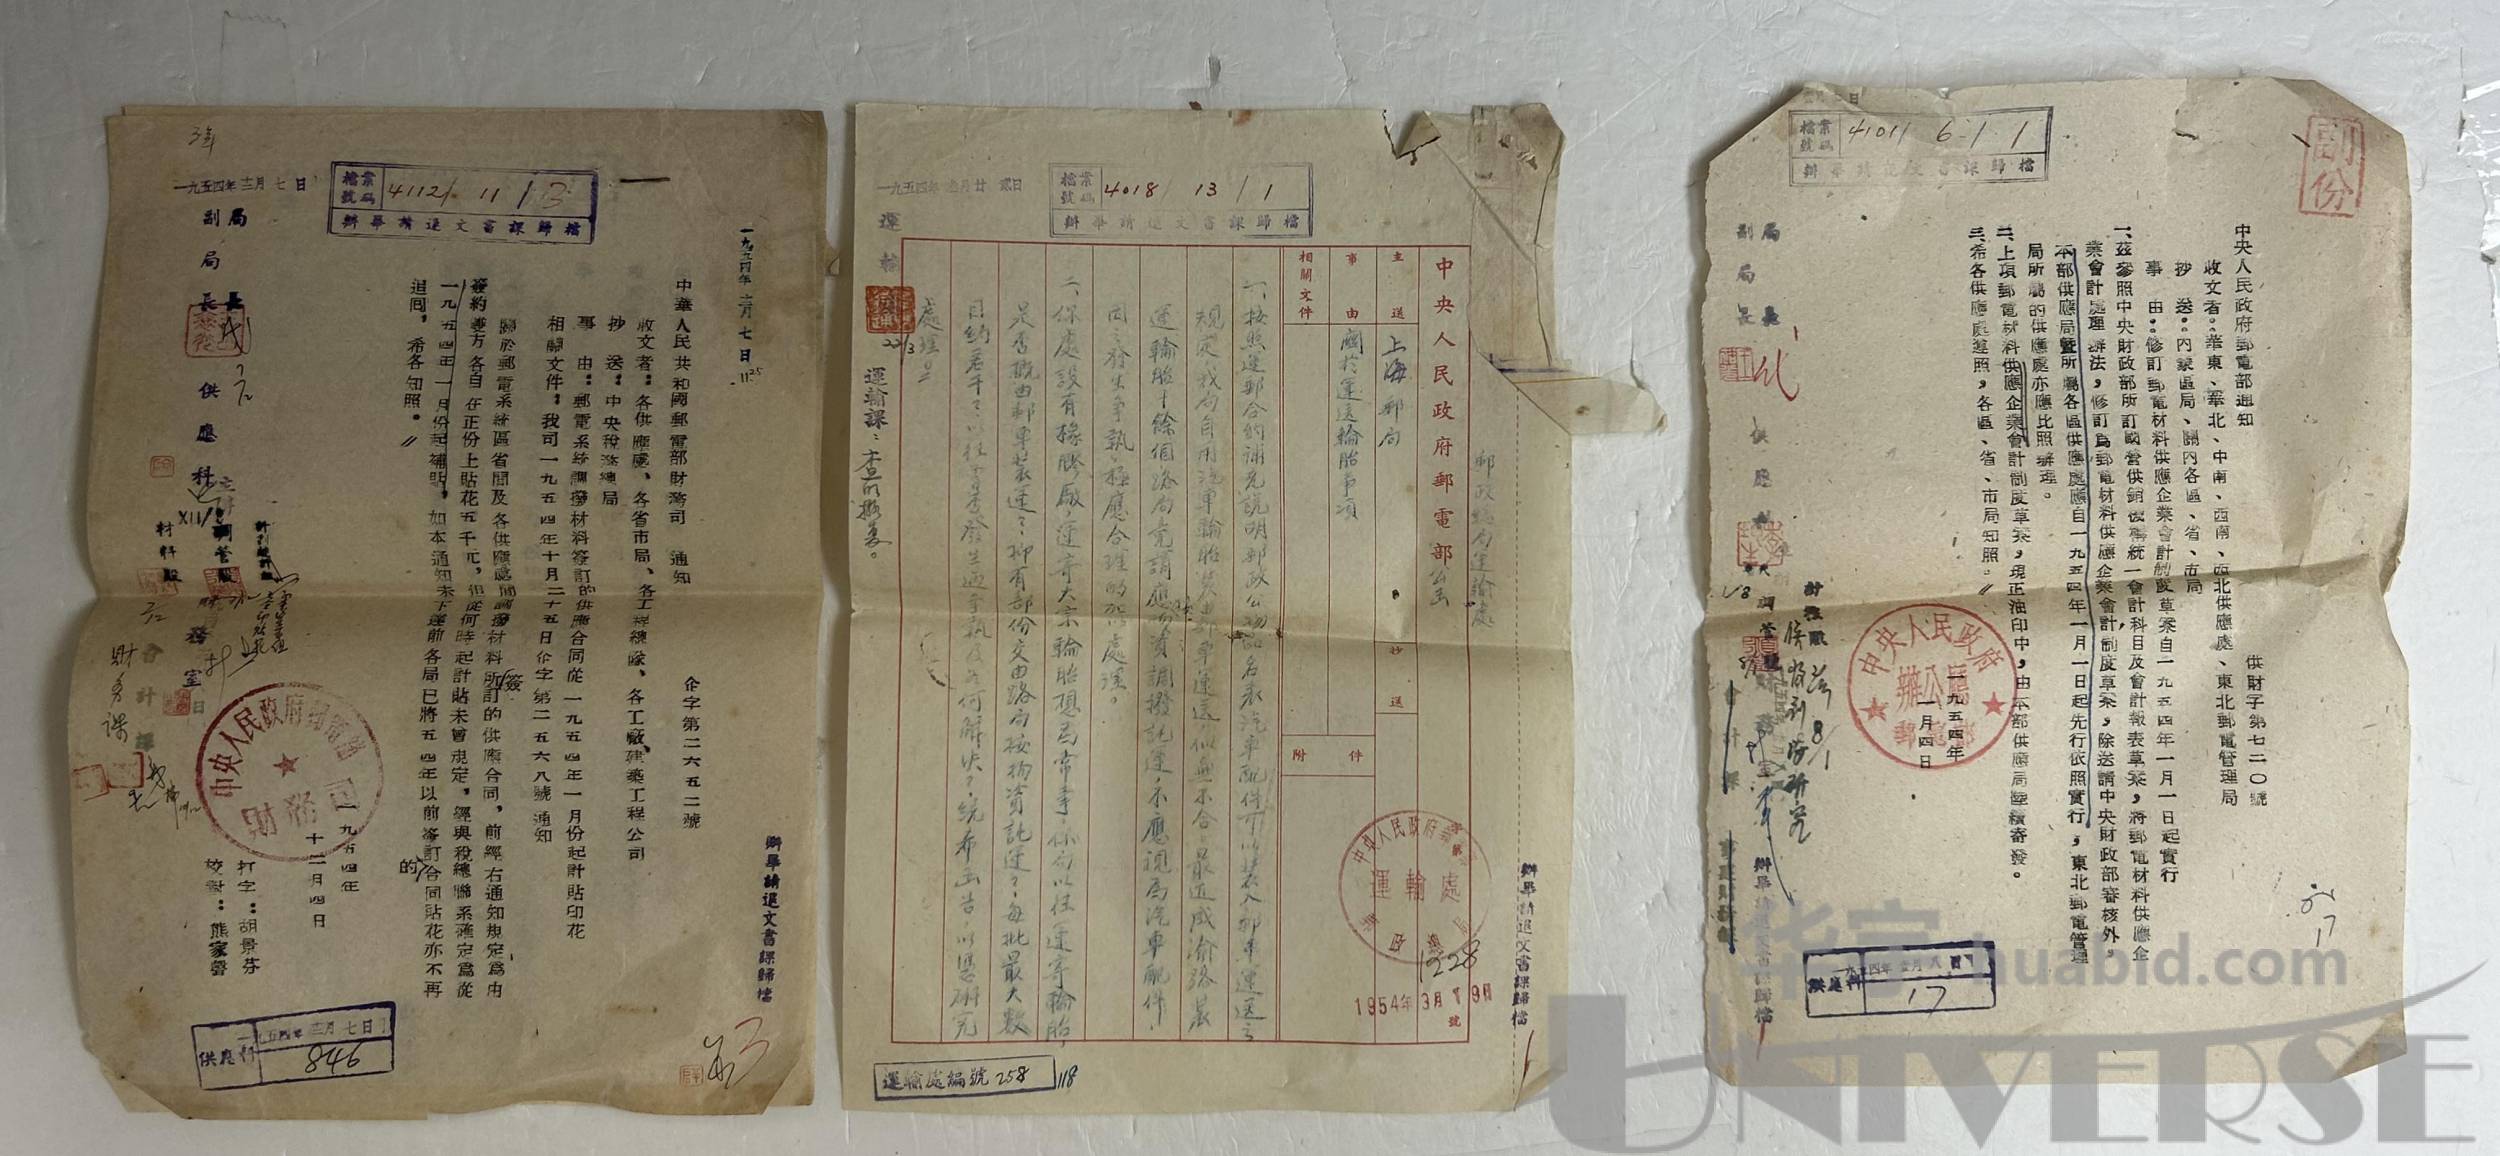 一九五四年 二月 七 日
中華人民共和國郵電部財務司 通知
企字第二六五二號
收文者：各供應處、各省市局、各工程總隊、各工廠建築工程公司
抄 送：中央稅務總局
事 由：郵電系統調撥材料簽訂的供應合同從一九五四年一月份起計貼印花
相關文件：我司一九五四年十月二十五日企字第二五六八號通知
關於郵電系統區省間及各供應處間調撥材料所簽訂的供應合同，前經右通知規定為由
簽約雙方各自在正份上貼花五千元，但從何時起計貼未曾規定，經與稅總聯系確定為從
一九五四年一月份起補貼，如本通知未下達前各局已將五四年以前簽訂的合同貼花亦不再
追回，希各知照。
中央人民政府郵電部
財務司
一九五四年
十二月四日
打字：胡景芬
校對：熊家聲
辦畢請退文書課歸檔
檔案號碼 4112 / 11 / 3
辦畢請退文書課歸檔
一九五四年 十二月 七 日
局長
副局長
供應科
材料股
會計課
財務課
供應科
一九五四年十二月七日
846
郵政總局運輸處
中央人民政府郵電部公函
主送 上海郵局
抄送
事由 關於運送輪胎事項
附件
相關文件
一、按照運郵合約補充說明郵政公物品名表汽車配件可以裝入郵車運送之
規定我局自用汽車輪胎裝由郵車運送，似無不合。最近成渝路裝
運輪胎十餘個路局竟謂應按物資調撥託運，不應視為汽車配件，
因之發生爭執，極應合理的加以處理。
二、你處設有橡膠廠，運寄大宗輪胎想為常事，你局以往運寄輪胎，
是否概由郵車裝運？抑有部份交由路局按物資託運？每批最大數
目約若干？以往曾否發生過爭執及如何解決？統希函告，以憑研究
處理
中央人民政府郵電部
運輸處
郵政總局
1228
1954年3月19日
號
檔案號碼 4018 / 13 / 1
辦畢請退文書課歸檔
運輸課：查明擬复。
22/3
運輸處編號 258
118
辦畢請退文書課歸檔
副份
中央人民政府郵電部通知
供財字第七二〇號
收文者：華東、華北、中南、西南、西北供應處、東北郵電管理局
抄 送：內蒙區局、關內各區、省、市局
事 由：修訂郵電材料供應企業會計制度草案自一九五四年一月一日起實行
一、茲參照中央財政部所訂國營供銷機構統一會計科目及會計報表草案，將郵電材料供應企
業會計處理辦法，修訂為郵電材料供應企業會計制度草案，除送請中央財政部審核外，
本部供應局暨所屬各區供應處應自一九五四年一月一日起先行依照實行，東北郵電管理
局所屬的供應處亦應比照辦理。
二、上項郵電材料供應企業會計制度草案，現正油印中，由本部供應局陸續寄發。
三、希各供應處遵照，各區、省、市局知照。
中央人民政府
辦公廳
郵電部
一九五四年
一月四日
檔案號碼 4101 / 6-1 / 1
辦畢請退文書課歸檔
局長
副局長
辦畢請退文書課歸檔
供應科
17
华宇 huabid.com
UNIVERSE